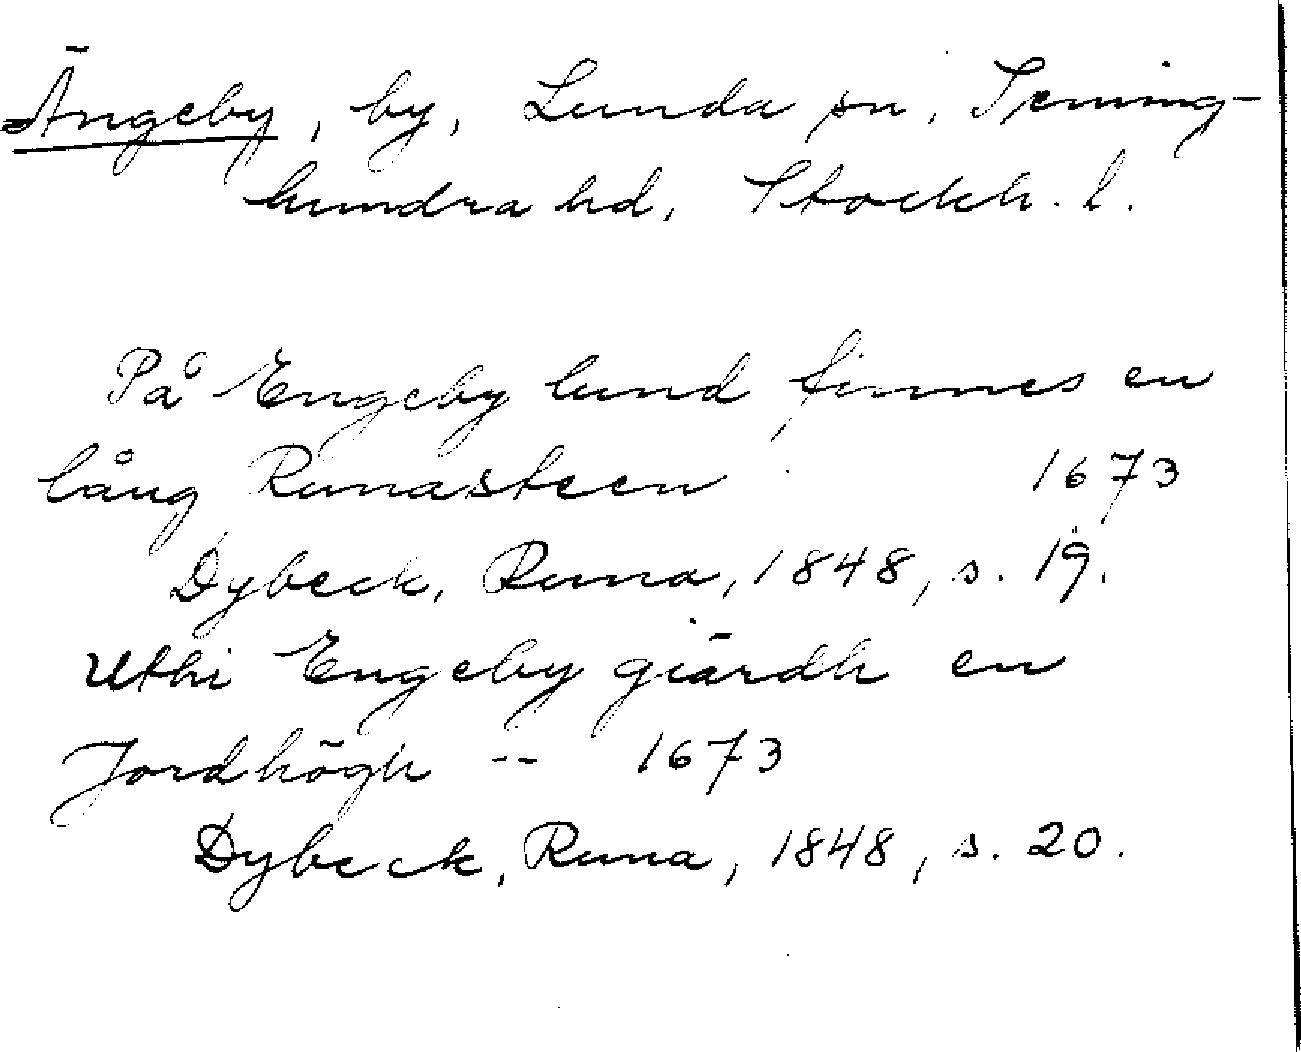 Ängeby, by, Lunda sn, Seming-
hundra hd, Stockh. l.
På Engeby lund finnes en
lång Runasteen 1673
Dybeck, Runa, 1848, s. 19.
Uthi Engeby giärdh en
Jordhögh -- 1673
Dybeck, Runa, 1848, s. 20.